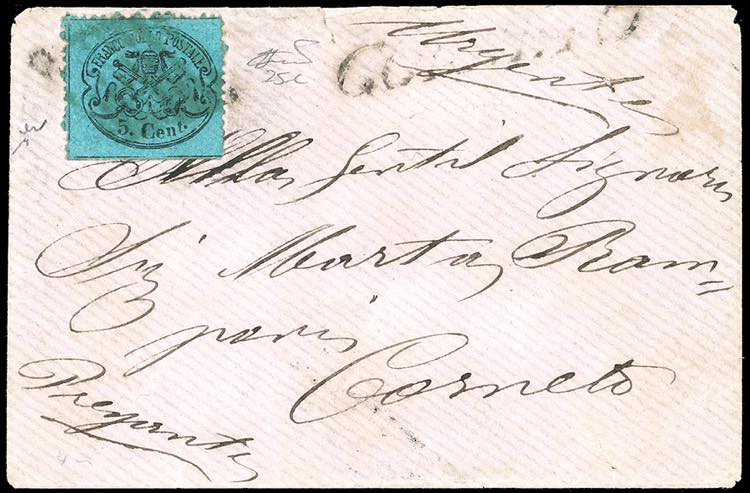 FRANCO BOLLO POSTALE
5. Cent.
Urgente
Alla Gentil Signora
Sig Marta Ram=
poni
Corneto
Pregiate